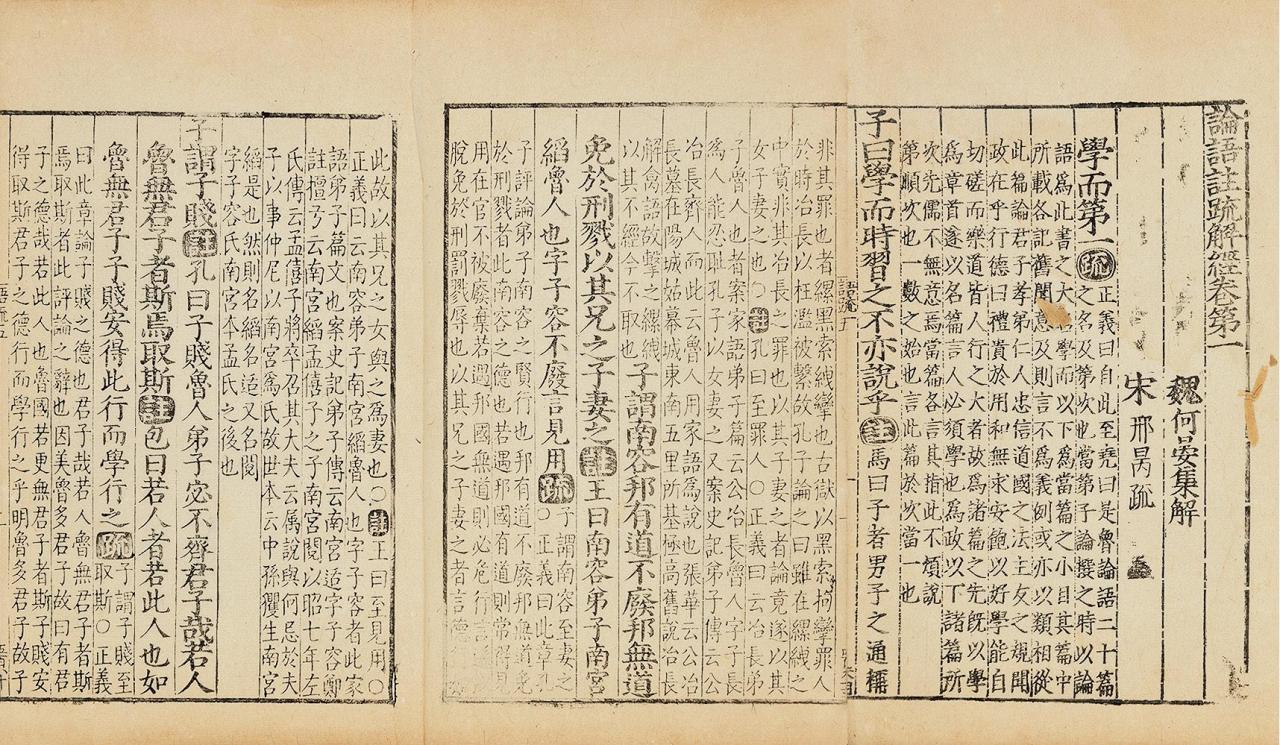 論語註疏解經卷第一
魏何晏集解
宋邢昺疏
學而第一疏正義曰自此至堯曰是魯論語二十篇
之名及第次也當弟子論撰之時以論
語爲此書之大名學而以下爲當篇之小目其篇中
所載各記舊聞意及則言不爲義例或亦以類相從
此篇論君子孝弟仁人忠信道國之法主友之規聞
政在乎行德由禮貴於用和無求安飽以好學能自
切磋而樂道皆人行之大者故爲諸篇之先既以學
爲章首遂以名篇言人必須學也爲政以下諸篇所
次先儒不無意焉當篇各言其指此不煩說
第順次也一數之始也言此篇於次當一也
子曰學而時習之不亦說乎註馬曰子者男子之通稱
非其罪也者縲黑索絏攣也古獄以黑索拘攣罪人
於時冶長以枉濫被繫故孔子論之曰雖在縲絏之
中實非其冶長之罪也以其子妻之者論竟遂以其
女子妻之也○註孔曰至罪人○正義曰云冶長弟
子魯人也者案家語弟子篇云公冶長魯人字子長
爲人能忍恥孔子以女妻之又案史記弟子傳云公
冶長齊人而此云魯人用家語爲說也張華云公冶
長墓在陽城姑幕城東南五里所基極高舊說冶長
解禽語故繫之縲絏
以其不經今不取也
子謂南容邦有道不廢邦無道
免於刑戮以其兄之子妻之註王曰南容弟子南宮
縚魯人也字子容不廢言見用疏子謂南容至妻之
○正義曰此章孔
子評論弟子南容之賢行也邦有道不廢邦無道免
於刑戮者此南容之德也若遇邦國有道則常得見
用在官不被廢棄若遇邦國無道則必危行言遜以
脫免於刑罰戮辱也以其兄之子妻之者言德行如
此故以其兄之女與之爲妻也○註王曰至見用○
正義曰云南容弟子南宮縚魯人也字子容者此家
語弟子篇文也案史記弟子傳云南宮适字子容鄭
註檀弓云南宮縚孟僖子之子南宮閱以昭七年左
氏傳云孟僖子將卒召其大夫云屬說與何忌於夫
子以事仲尼以南宮爲氏故世本云中孫貜生南宮
縚是也然則名縚名适又名閱
字子容氏南宮本孟氏之後也
子謂子賤註孔曰子賤魯人弟子宓不齊君子哉若人
魯無君子者斯焉取斯註包曰若人者若此人也如
魯無君子子賤安得此行而學行之疏子謂子賤至
取斯○正義
曰此章論子賤之德也君子哉若人魯無君子者斯
焉取斯者此評論之辭也因美魯多君子故曰有君
子之德哉若此人也魯國若更無君子者斯子賤安
得取斯君子之德行而學行之乎明魯多君子故子